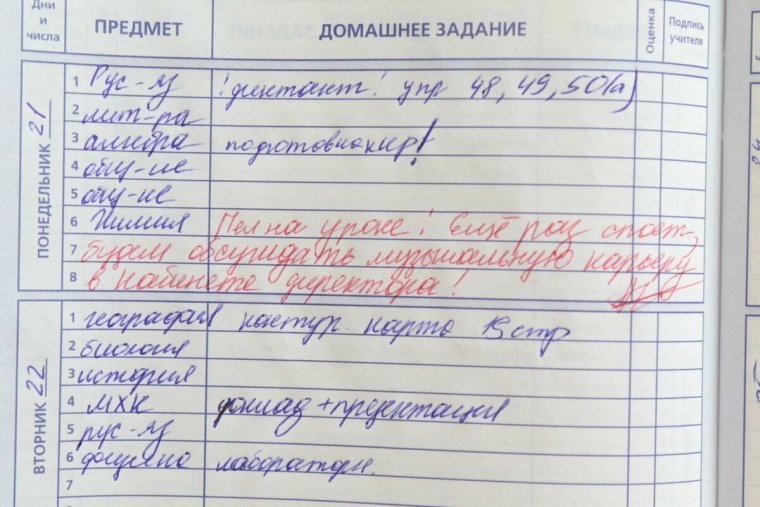 Дни и числа ПРЕДМЕТ ДОМАШНЕЕ ЗАДАНИЕ Оценка Подпись учителя
ПОНЕДЕЛЬНИК 21
1 Рус-яз ! диктант! упр 48, 49, 50(а)
2 лит-ра
3 алгебра подготов на к/р!
4 общ-ие
5 общ-ие
6 Химия Пел на уроке! Ещё раз споет,
7 будем обсуждать музыкальную карьеру
8 в кабинете директора!
ВТОРНИК 22
1 география контур. карта 13 стр
2 биология
3 история
4 МХК доклад + презентация
5 рус-яз
6 физика лаборатори.
7